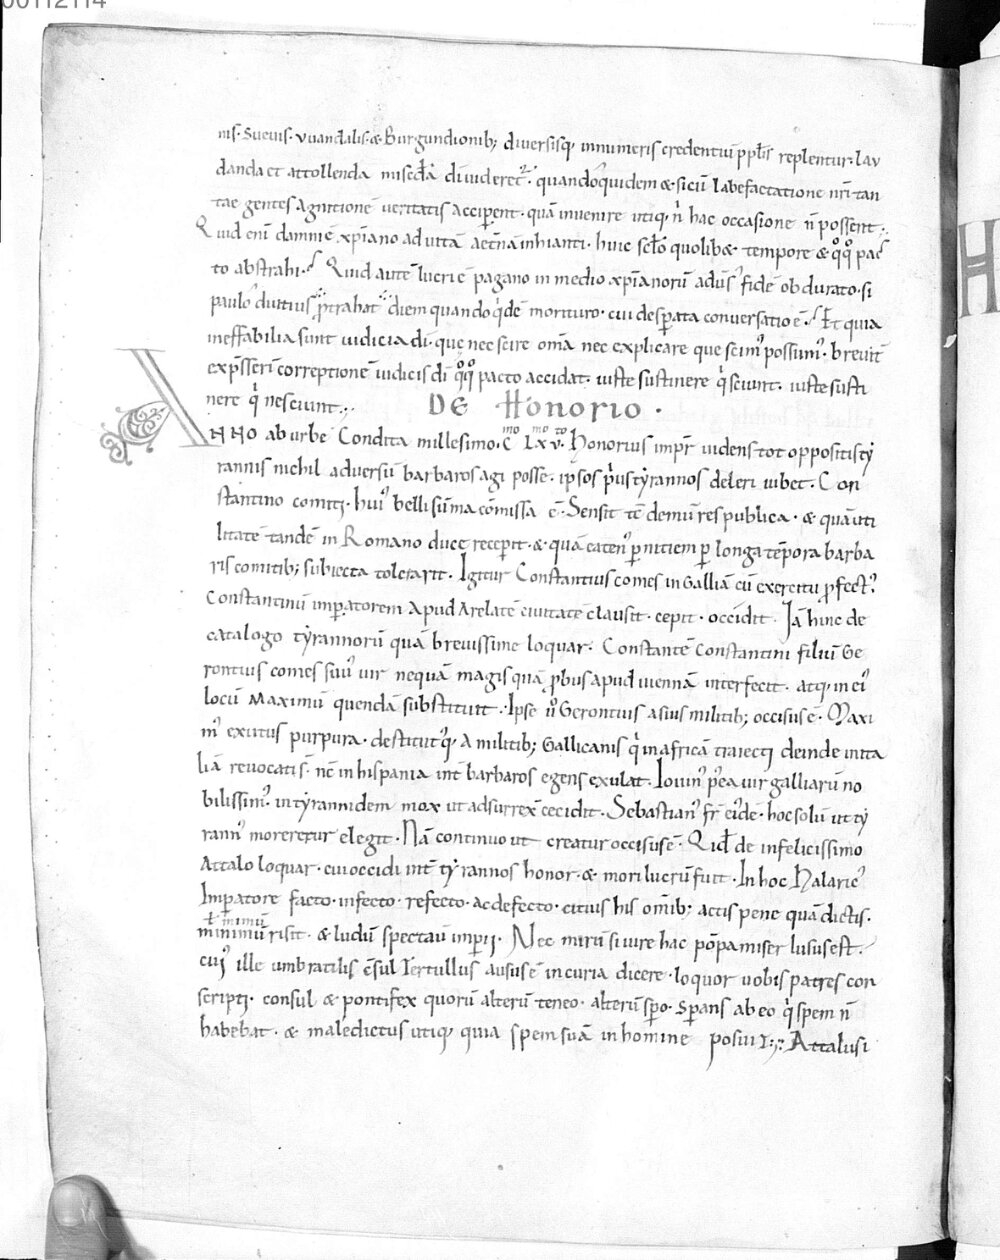 00112114
nis· Suevis· vuandalis· & Burgundionib; diversisq; innumeris credentiū pp̄lis replentur· lau
danda et attollenda misc̄dia di videret᷑· quandoquidem & si cū labefactatione nr̄i tan
tae gentes agnitionē veritatis acciperent· quā invenire utiq; n̄ hac occasione n̄ possent·
Quid enī damni ē xp̄iano ad vitā aet̄nā inhianti· huic sclo quolib& tempore & q°q° pac
to abstrahi· Quid autē lucri ē pagano in medio xp̄ianorū advs̄ fidē obdurato· si
paulo diutius p̄trahat diem quandoq;dē morituro· cui desperata conversatio ē· Et quia
ineffabilia sunt iudicia di· que nec scire om̄a nec explicare que scim᾽ possum᾽· brevit̄
exp̄sserī correptionē iudicis di q°q° pacto accidat· iuste sustinere qⁱ sciunt· iuste susti
nere qⁱ nesciunt·
DE Honorio·
ANNO ab urbe Condita millesimo· cᵐᵒ Lxᵐᵒvᵗᵒ· Honorius impr̄ videns tot oppositis ty
rannis nichil adversū barbaros agi posse· ipsos p̄us tyrannos deleri iubet· Con
stantino comiti· hui᾽ belli sūma cōmissa ē· Sensit tc̄ demū res publica· & quā uti
litatē tandē in Romano duce recepit· & quā eaten᾽ p̄nitiem p̄ longa tēpora barba
ris comitib; subiecta tolerarit· Igitur Constantius comes in Galliā cū exercitu p̄fect᾽
Constantinū imp̄atorem apud Arelatē civitatē clausit· cepit· occidit· Iā hinc de
catalogo tyrannorū quā brevissime loquar· Constantē Constantini filiū Ge
rontius comes suu᾽ vir nequā magis quā p̄bus apud viennā interfecit· atq; in ei᾽
locū Maximū quendā substituit· Ipse v̄ Gerontius a suis militib; occisus ē· Maxi
m᾽ exutus purpura· destitut᾽q; a militib; Gallicanis qⁱ in africā traiecti deinde in ita
liā revocati s̄· nc̄ in hispania int̄ barbaros egens exulat· Iovin᾽ p̄ea vir galliarū no
bilissim᾽· in tyrannidem mox ut adsurrex̄ cecidit· Sebastian᾽ fr̄ ei᾽dē· hoc solū ut ty
rann᾽ moreretur elegit· Nā continuo ut creatur occisus ē· Qid de infelicissimo
Attalo loquar· cui occidi int̄ tyrannos honor· & mori lucrū fuit· In hoc Halaric᾽
Imp̄atore facto· infecto· refecto· ac defecto· citius his om̄ib; actis pene quā dictis·
ł mimum
minimū risit· & ludū spectavi imp̄ii· Nec mirū si iure hac pōpa miser lusus est·
cui᾽ ille umbratilis c̄sul Tertullus ausus ē in curia dicere· loquor vobis patres con
scripti· consul & pontifex quorū alterū teneo· alterū sp̄o· sp̄ans ab eo qⁱ spem n̄
habebat· & maledictus utiq; quia spem suā in homine posuit· Attalus i